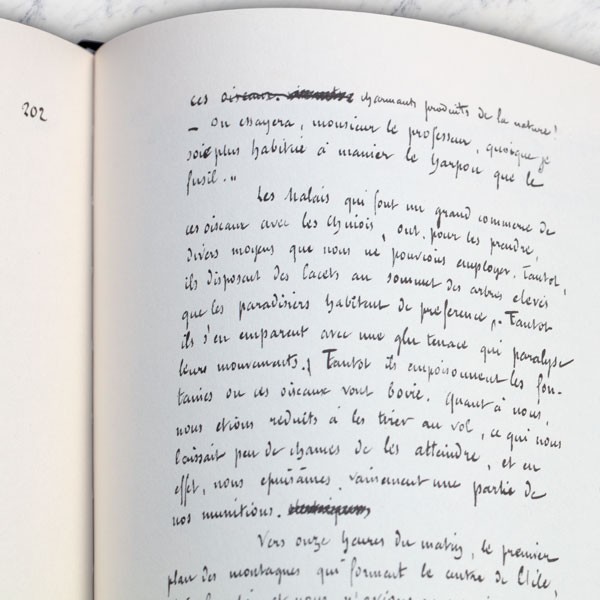 202
ces oiseaux. charmants produits de la nature!
— On essayera, monsieur le professeur, quoique je
sois plus habitué à manier le harpon que le
fusil."
Les Malais qui font un grand commerce de
ces oiseaux avec les Chinois, ont, pour les prendre,
divers moyens que nous ne pouvions employer. Tantot,
ils disposent des lacets au sommet des arbres elevés
que les paradisiers habitent de preference. Tantot
ils s'en emparent avec une glu tenace qui paralyse
leurs mouvements. Tantot ils empoisonnent les fon-
taines ou ces oiseaux vont boire. Quant à nous,
nous etions reduits à les tirer au vol, ce qui nous
laissait peu de chances de les atteindre, et en
effet, nous epuisames vainement une partie de
nos munitions.
Vers onze heures du matin, le premier
plan des montagnes qui forment le centre de l'ile,